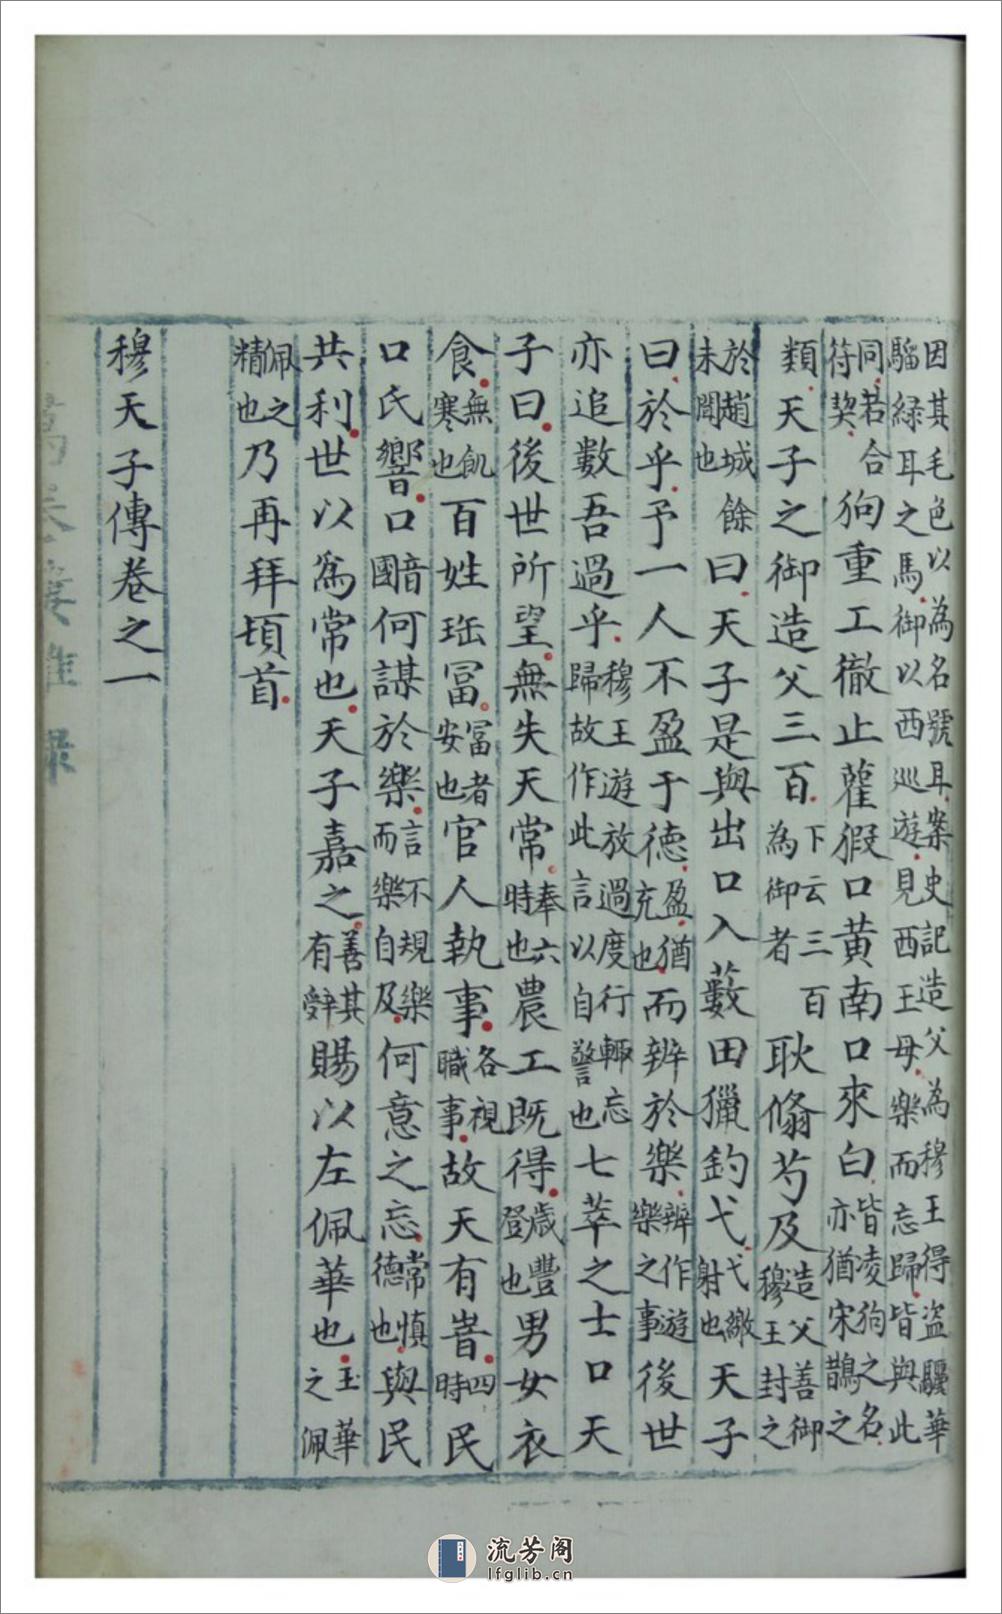 因其毛色以為名號耳案史記造父為穆王得盜驪華
騮綠耳之馬御以西巡遊見西王母樂而忘歸皆與此
同若合符契狗重工徹止雚猳口黃南口來白皆淩狗之名亦猶宋鵲之
類天子之御造父三百下云三百為御者耿翛芍及造父善御穆王封之
於趙城餘未聞也曰天子是與出口入藪田獵釣弋弋繳射也天子
曰於乎予一人不盈于德盈猶充也而辨於樂辨作遊樂之事後世
亦追數吾過乎穆王遊放過度行輙忘歸故作此言以自警也七萃之士口天
子曰後世所望無失天常奉六時也農工既得歲豐登也男女衣
食無飢寒也百姓珤冨冨者安也官人執事各視職事故天有旹四時民
口氏響口音國何謀於樂言不規樂而樂自及何意之忘常慎德也與民
共利世以爲常也天子嘉之善其有辤賜以左佩華也玉華之佩
佩之精也乃再拜頃首
穆天子傳卷之一
流芳阁
lfglib.cn